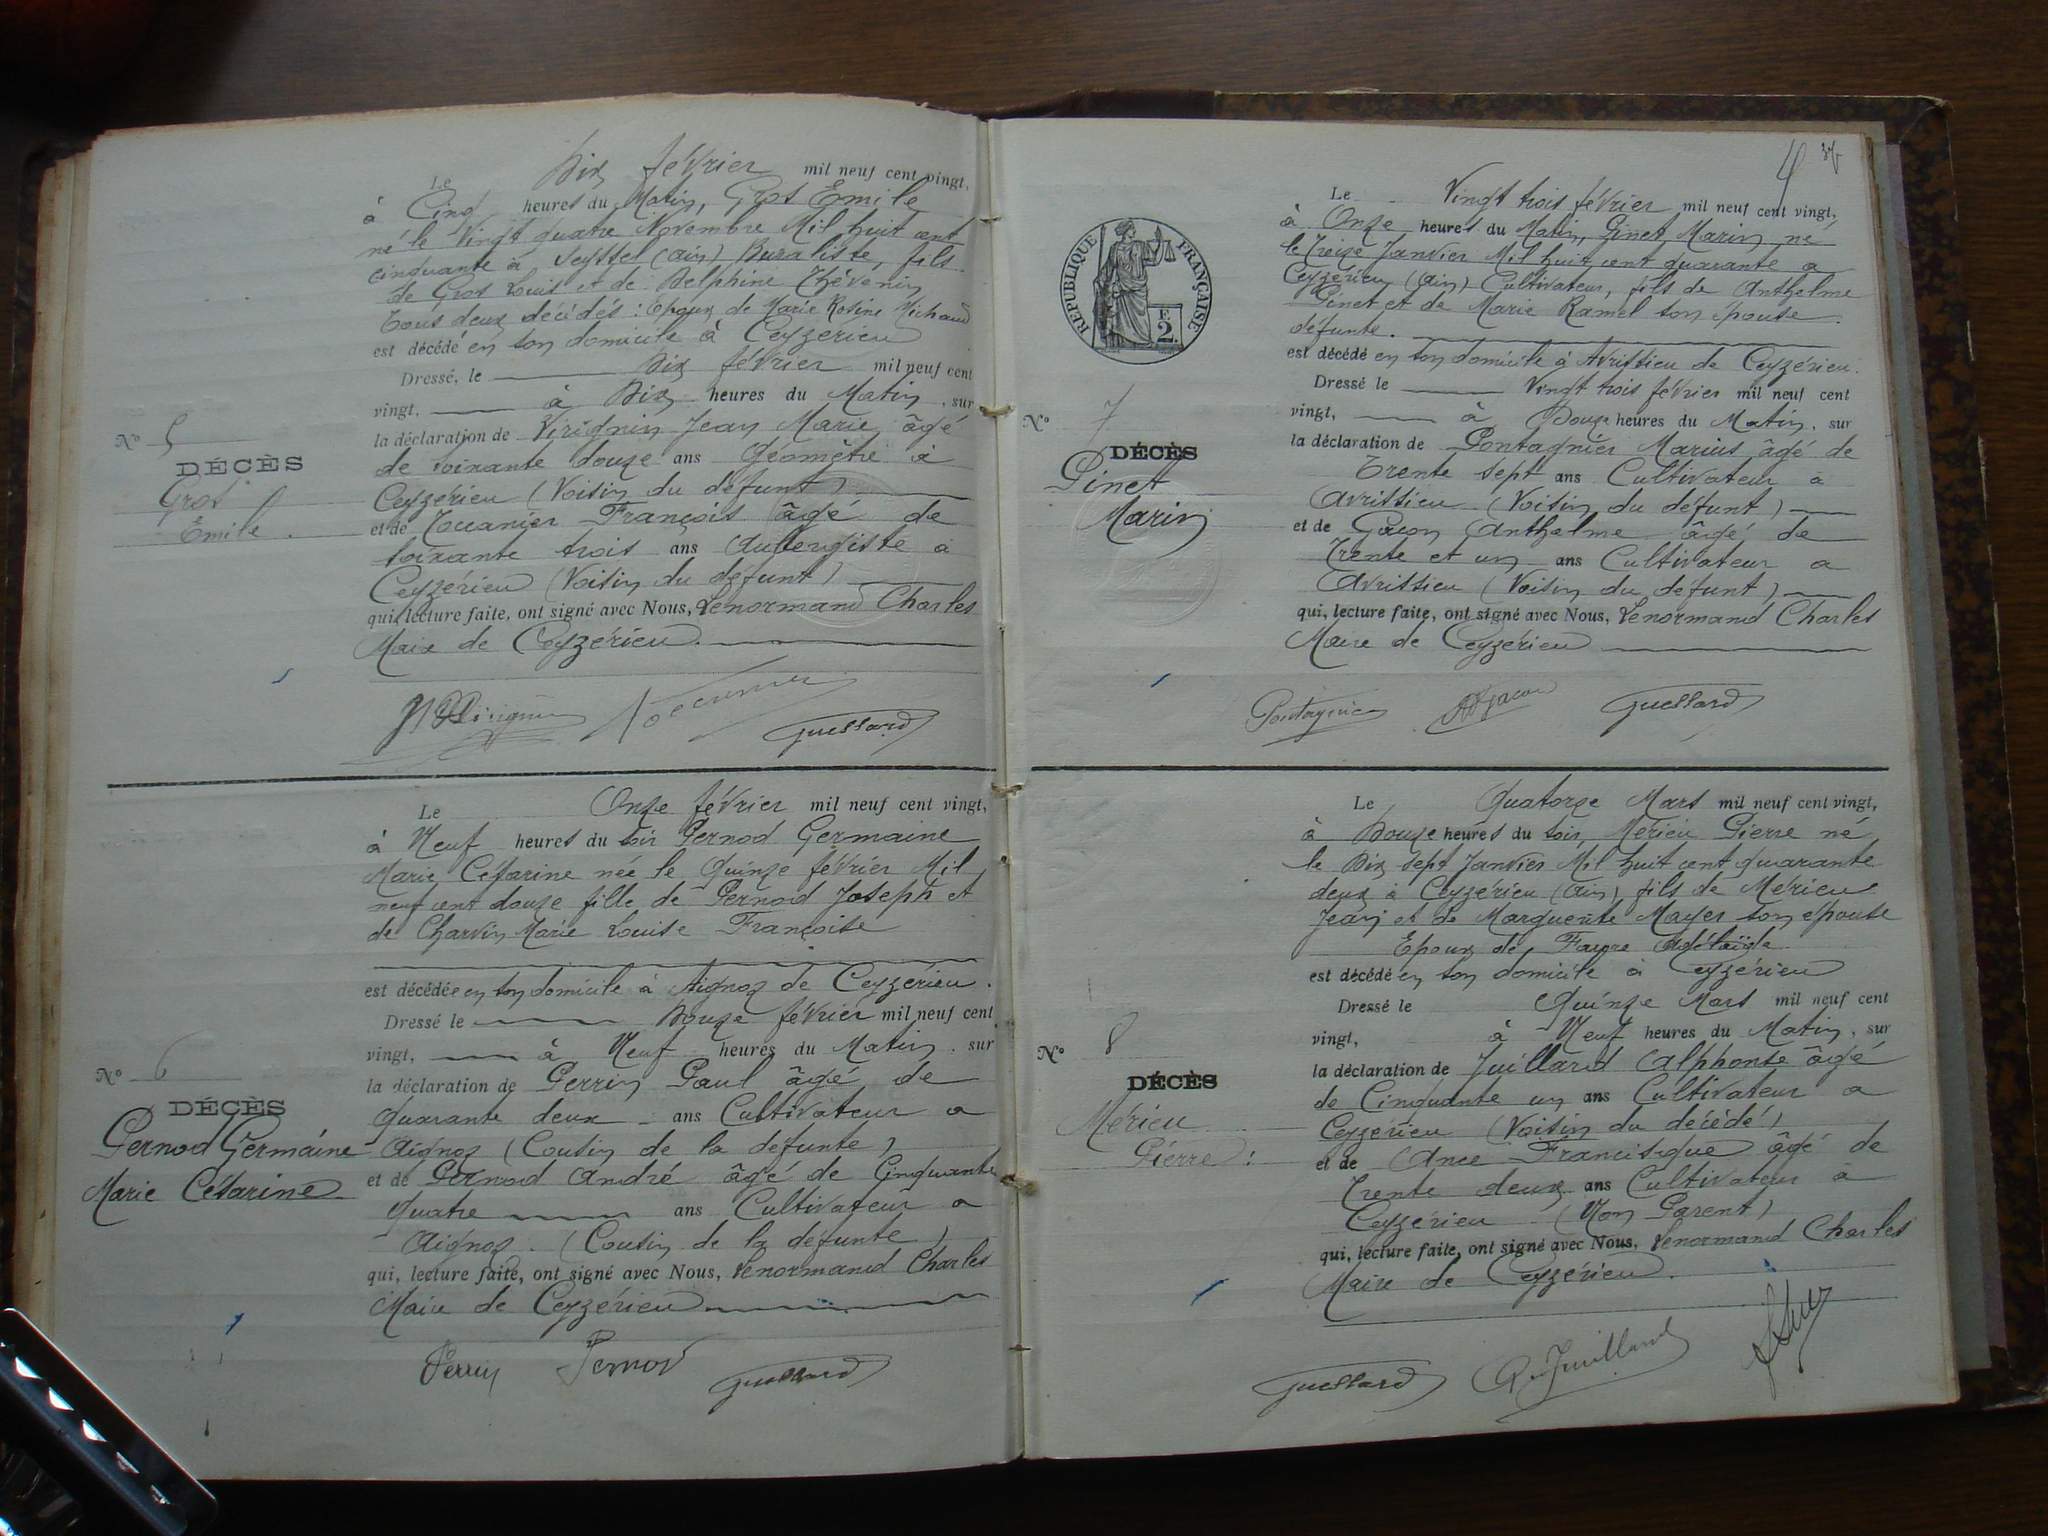 Le Dix février mil neuf cent vingt,
à Cinq heures du Matin, Gros Emile
né le Vingt quatre Novembre Mil huit cent
cinquante à Seyssel (Ain) Buraliste, fils
de Gros Louis et de Delphine Thévenin
tous deux décédés : époux de Marie Rosine Michaud
est décédé en son domicile à Ceyzérieu
Dressé, le Dix février mil neuf cent
vingt, à Dix heures du Matin, sur
la déclaration de Virignin Jean Marie âgé
de soixante douze ans Géomètre à
Ceyzérieu (Voisin du défunt)
et de Toccanier François âgé de
soixante trois ans Aubergiste à
Ceyzérieu (Voisin du défunt)
qui, lecture faite, ont signé avec Nous, Lenormand Charles
Maire de Ceyzérieu.
No 5
DÉCÈS
Gros
Emile.
Guessard
Le Onze février mil neuf cent vingt,
à Neuf heures du soir Pernod Germaine
Marie Césarine née le Quinze février Mil
neuf cent douze fille de Pernod Joseph et
de Charvin Marie Louise Françoise
est décédée en son domicile à Aignoz de Ceyzérieu.
Dressé le Douze février mil neuf cent
vingt, à Neuf heures du Matin, sur
la déclaration de Perrin Paul âgé de
Quarante deux ans Cultivateur a
Aignoz (Cousin de la défunte)
et de Pernod André âgé de Cinquante
Quatre ans Cultivateur a
Aignoz. (Cousin de la défunte)
qui, lecture faite, ont signé avec Nous, Lenormand Charles
Maire de Ceyzérieu
No 6
DÉCÈS
Pernod Germaine
Marie Césarine
Perrin Pernod Guessard
4
RÉPUBLIQUE FRANÇAISE
F.
2.
Le Vingt trois février mil neuf cent vingt,
à Onze heures du Matin, Ginet Marin né
le Treize Janvier Mil huit cent quarante a
Ceyzérieu (Ain) Cultivateur, fils de Anthelme
Ginet et de Marie Ramel son épouse
défunte.
est décédé en son domicile à Avrissieu de Ceyzérieu.
Dressé le Vingt trois février mil neuf cent
vingt, à Douze heures du Matin, sur
la déclaration de Pontagnier Marius âgé de
Trente sept ans Cultivateur à
Avrissieu (Voisin du défunt)
et de Gacon Anthelme âgé de
Trente et un ans Cultivateur a
Avrissieu (Voisin du défunt)
qui, lecture faite, ont signé avec Nous, Lenormand Charles
Maire de Ceyzérieu
No 7
DÉCÈS
Ginet
Marin
Pontagnier Guessard
Le Quatorze Mars mil neuf cent vingt,
à Douze heures du soir, Mérieu Pierre né
le Dix sept Janvier Mil huit cent quarante
deux à Ceyzérieu (Ain) fils de Mérieu
Jean et de Marguerite Mayer son épouse
Epoux de Favre Adélaïde
est décédé en son domicile à Ceyzérieu
Dressé le Quinze Mars mil neuf cent
vingt, à Neuf heures du Matin, sur
la déclaration de Juillard Alphonse âgé
de Cinquante un ans Cultivateur a
Ceyzérieu (Voisin du décédé)
et de Ance Francisque âgé de
Trente deux ans Cultivateur à
Ceyzérieu (Non Parent)
qui, lecture faite, ont signé avec Nous, Lenormand Charles
Maire de Ceyzérieu.
No 8
DÉCÈS
Mérieu
Pierre :
Guessard Juillard